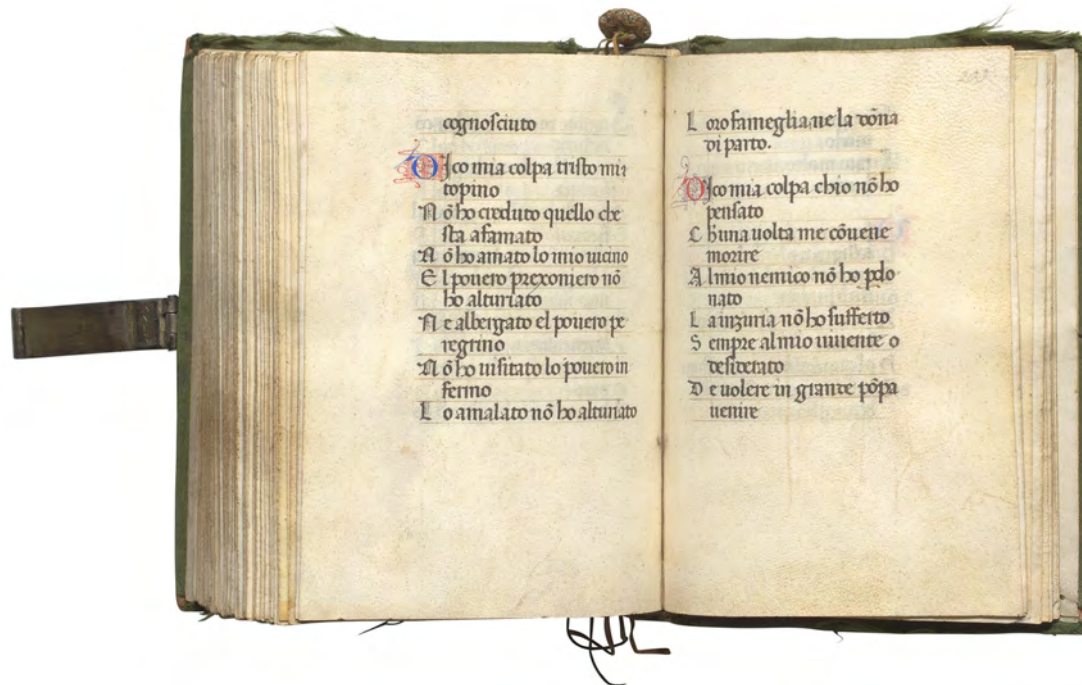 cognosciuto
Dico mia colpa tristo mia
topino
Nõ ho creduto quello che
sta afamato
Nõ ho amato lo mio uicino
El pouero prexoniero nõ
ho alturiato
Ne albergato el pouero pe
regrino
Nõ ho uisitato lo pouero in
fermo
Lo amalato nõ ho alturiato
Loro fameglia ne la dõna
di parto.
Dico mia colpa chio nõ ho
pensato
Chuna uolta me cõuene
morire
Al mio nemico nõ ho pdo
nato
La inzuria nõ ho sufferto
Sempre al mio uiuente o
desiderato
De uolere in grande põpa
uenire